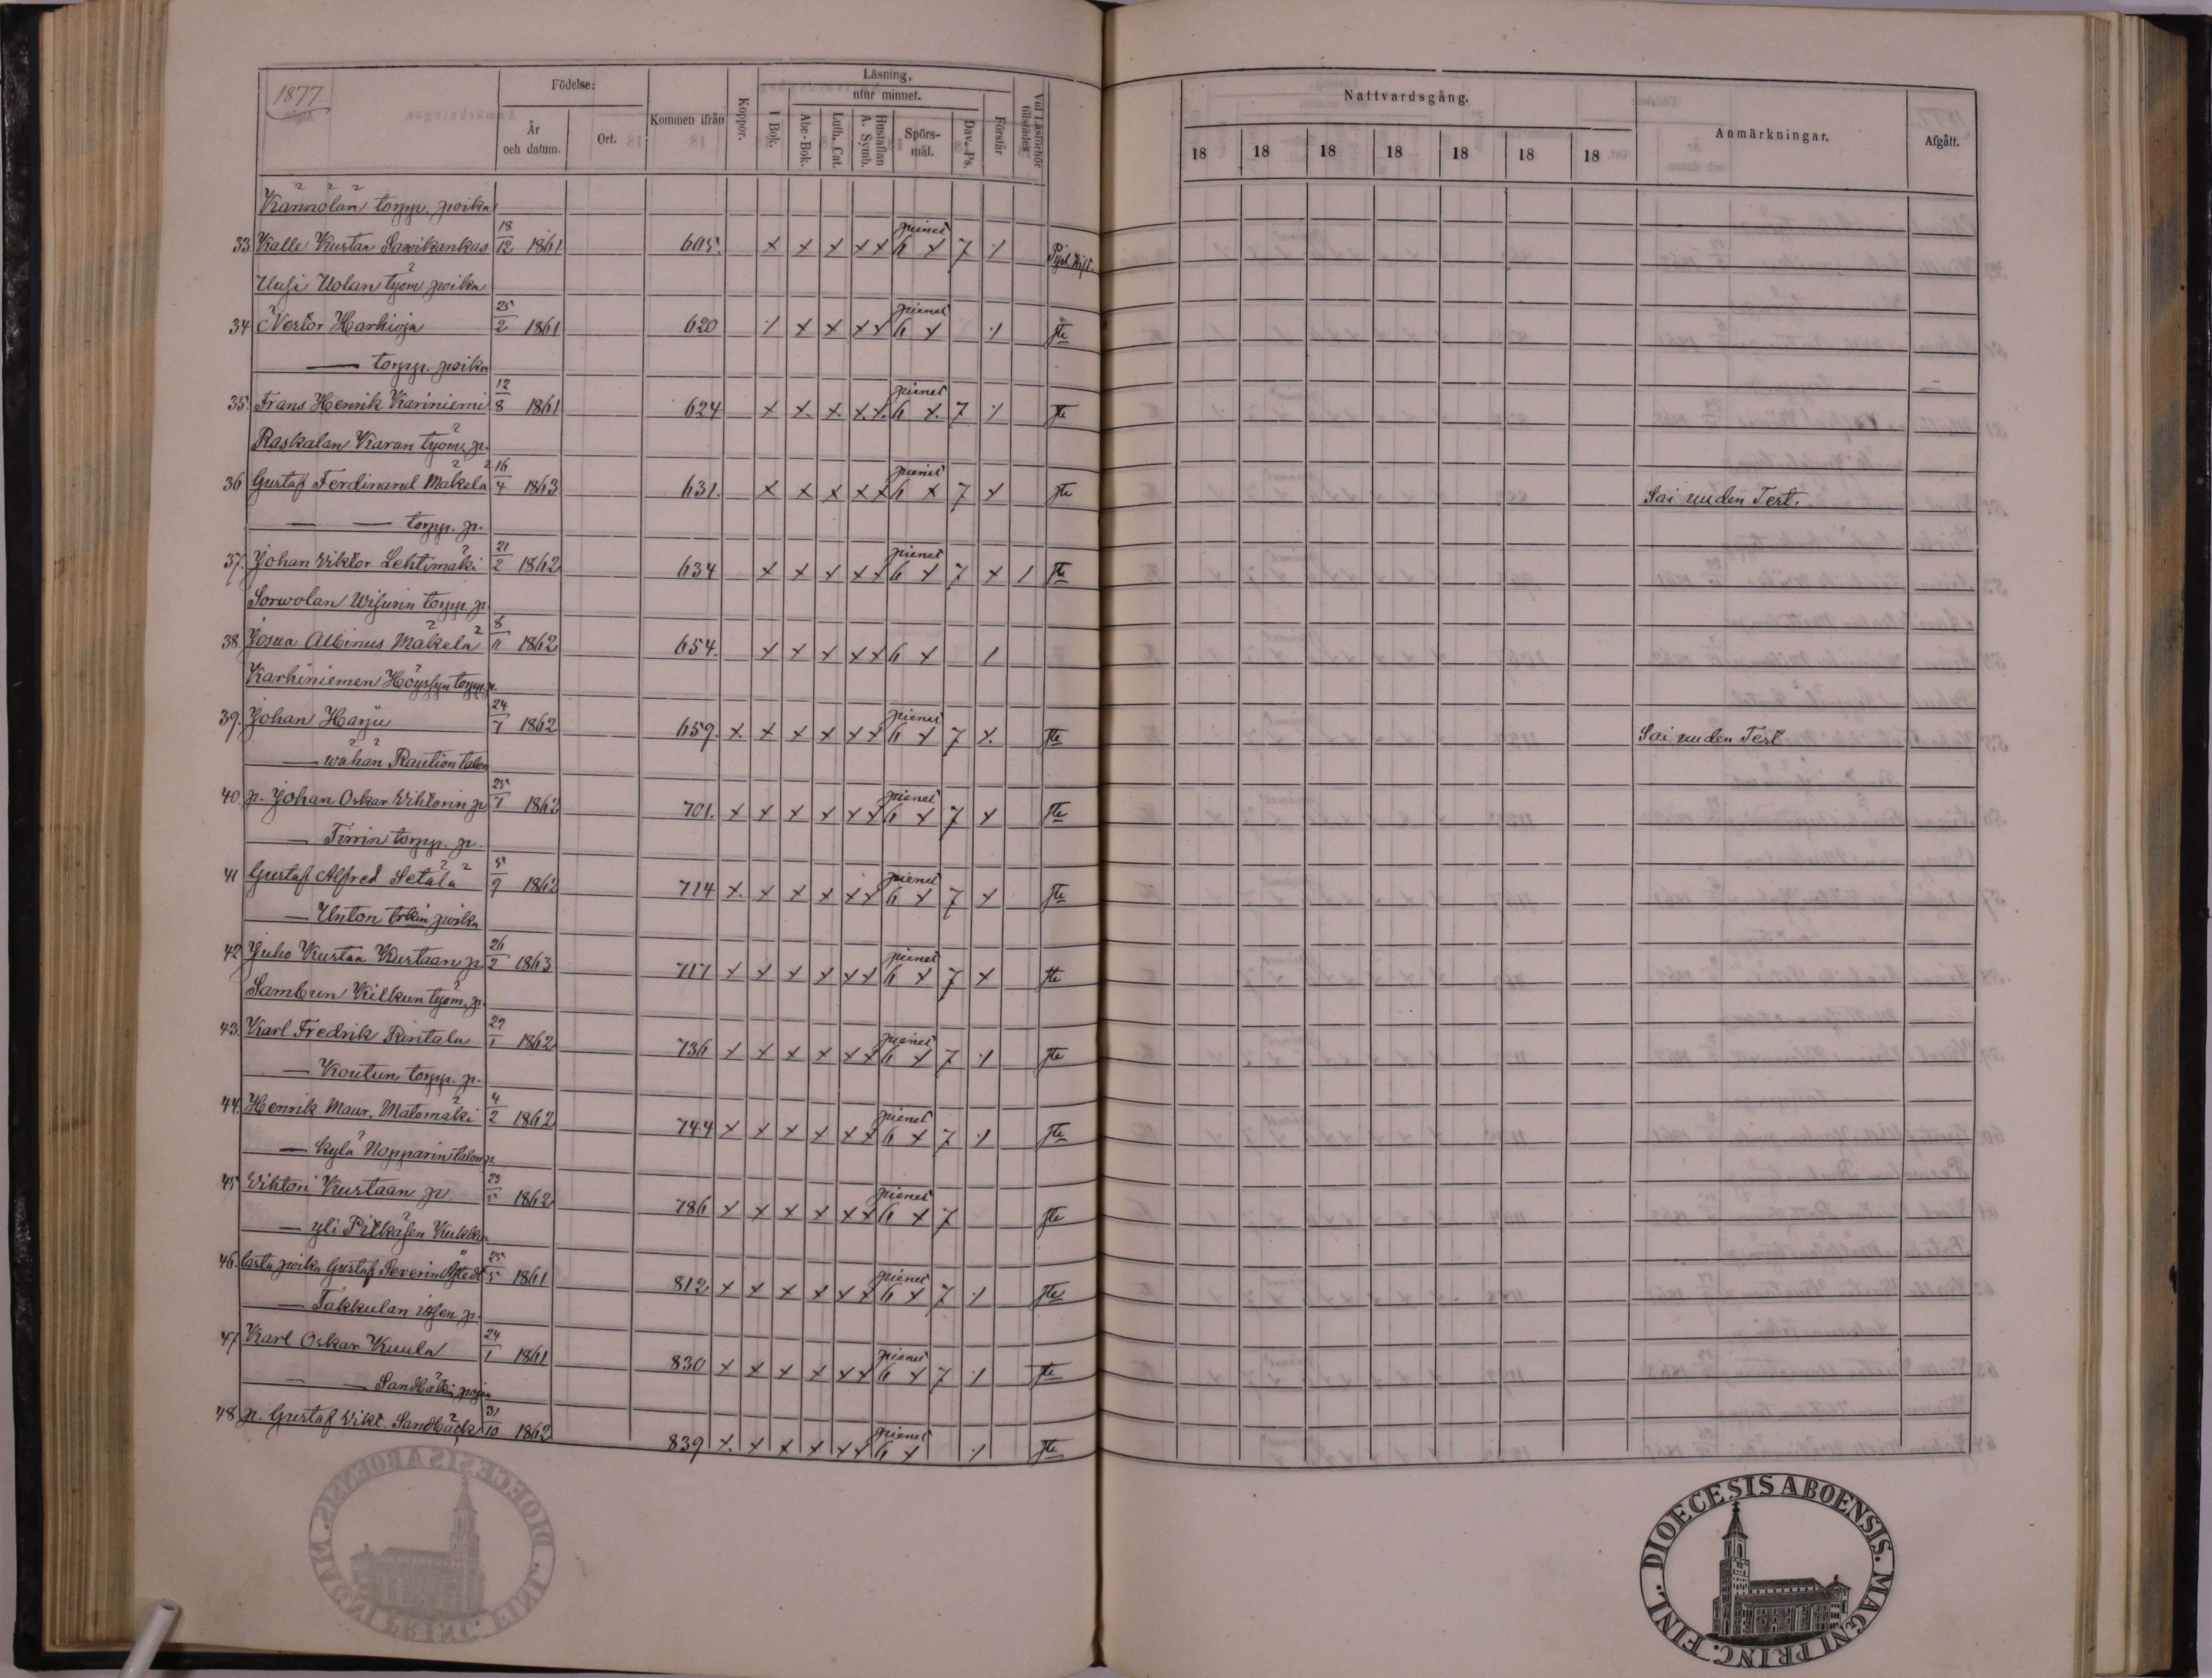 1877.
Födelse:
År och datum.
Ort.
Kommen ifrån
Koppor.
Läsning.
utur minnet.
I Bok.
Abc-Bok.
Luth. Cat.
Hustaflan A. Symb.
Spörsmål.
Dav. Ps.
Förstår
Vid Läsförhör tillstädes
Nattvardsgång.
18 18 18 18 18 18 18
Anmärkningar.
Afgått.
Kännölän torpp. poika
33. Kalle Kustaa Savikankas 18/12 1861 605. x x x x x pienet 6 x 7 ⁒
Uusi Uolan työm. poika
34 Nestor Harhioja 25/2 1861 620 ⁒ x x x x pienet 6 x ⁒ Jte
— torpp. poika
35. Frans Henrik Kariniemi 12/8 1861 624 x x. x. x. x. pienet 6 x. 7 ⁒ Jte
Raskalan Karan työm. p.
36 Gustaf Ferdinand Mäkelä 16/4 1863 631. x x x x x pienet 6 x 7 x Jte Sai uuden Test.
— — torpp. p.
37. Johan Viktor Lehtimäki 21/2 1862 634 x x x x x pienet 6 x 7 x 1 Jte
Sorwolan Wisurin torpp. p.
38. Josua Albinus Mäkelä 8/11 1862 654. x x x x x 6 x 1
Karhiniemen Höyssyn torpp. p.
39. Johan Harju 24/7 1862 659. x x x x x x pienet 6 x 7 x. Jte Sai uuden Test
— wähän Raution talon
40. p. Johan Oskar Vihtorin p. 25/7 1862 701. x x x x x x pienet 6 x 7 x Jte
— Tirrin torpp. p.
41 Gustaf Alfred Setälä 5/9 1862 714 x. x x x x x pienet 6 x 7 x Jte
— Unton poika
42 Juho Kustaa Kustaan p. 26/2 1863 717 x x x x x x pienet 6 x 7 x Jte
Sambun Kilkun työm. p.
43. Karl Fredrik Rintala 29/1 1862 736 x x x x x x pienet 6 x 7 ⁒ Jte
— Koutun torpp. p.
44. Henrik Maur. Matomäki 4/2 1862 744 x x x x x x pienet 6 x 7 ⁒ Jte
— kylä Nopparin talon p.
45 Vihtori Kustaan p. 23/5 1862 786 x x x x x x pienet 6 x 7 Jte
— yli Pitkäsen Kukka
46. poika Gustaf Severin 25/5 1861 812 x x x x x x pienet 6 x 7 ⁒ Jte
— Takkulan p.
47. Karl Oskar Kuula 24/1 1861 830 x x x x x x pienet 6 x 7 ⁒ Jte
— — Sandbäkin pojan
48 p. Gustaf Vikt. Sandbäck 31/10 1862 839 x x x x x x pienet 6 x ⁒ Jte
DIOECESIS ABOENSIS. MAGNI PRINC. FINL.